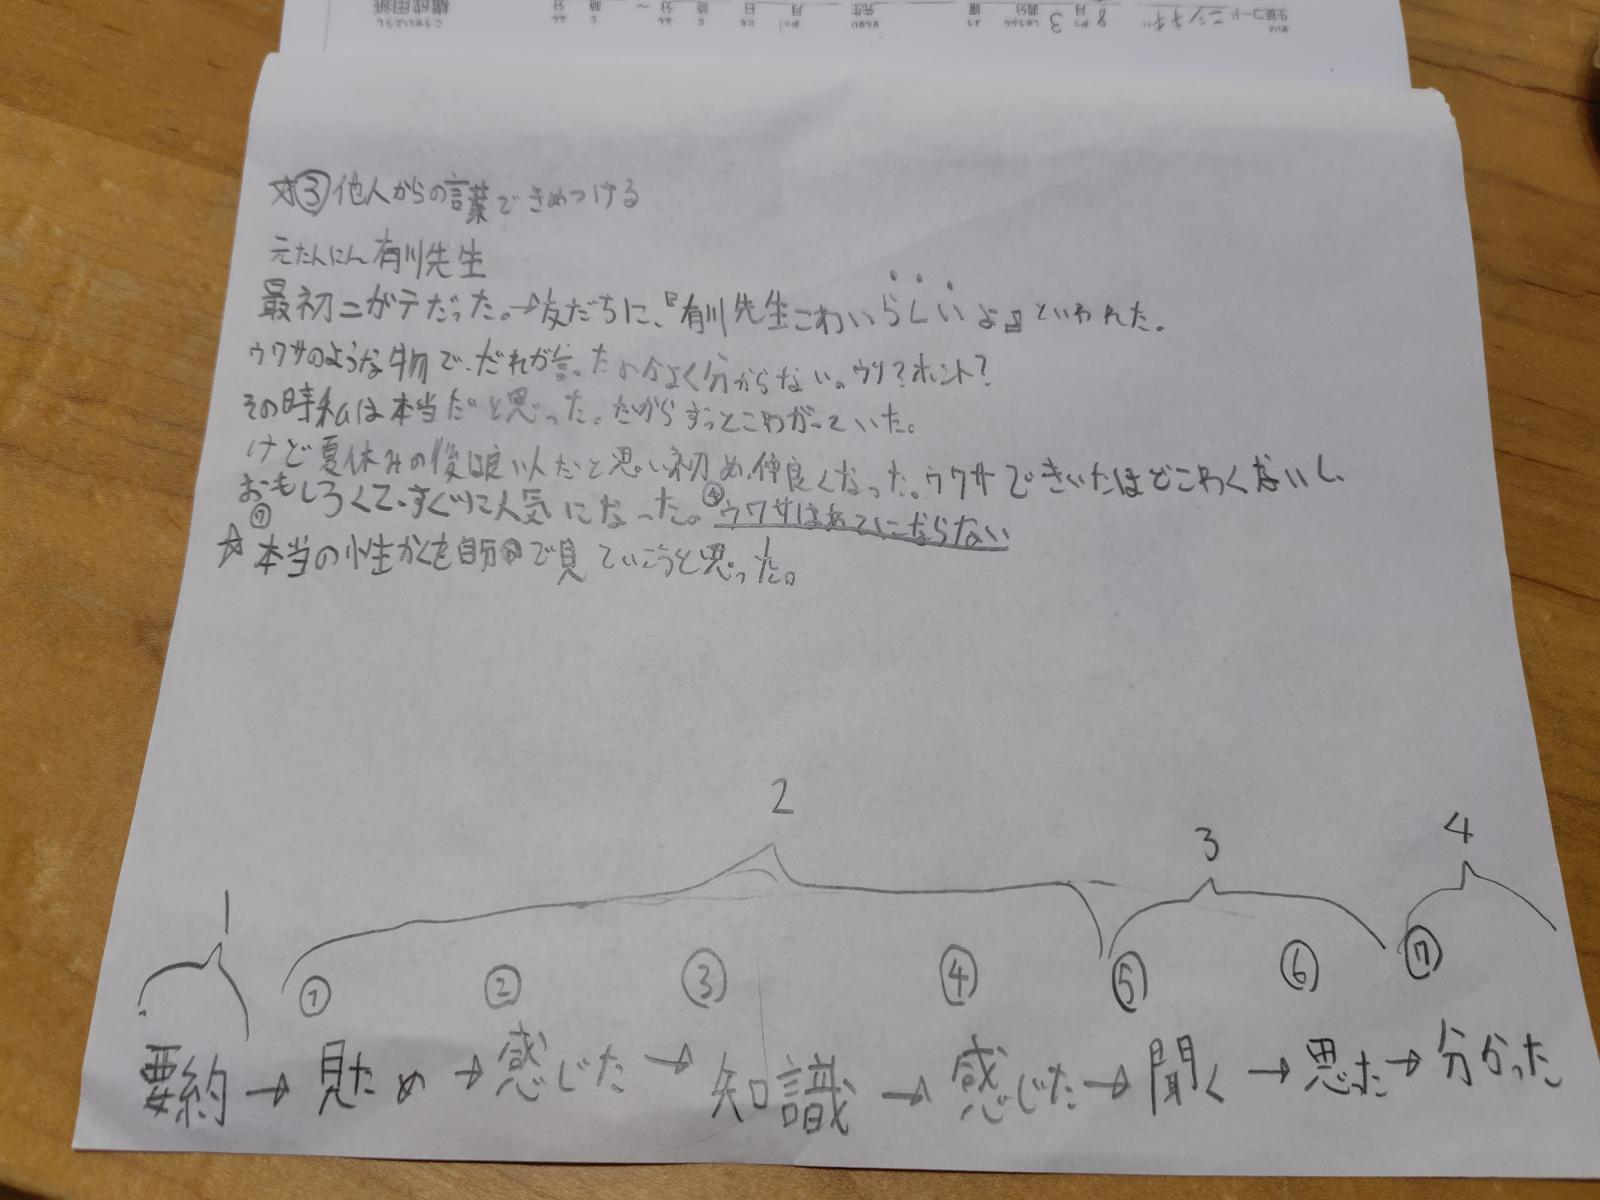 ☆③他人からの言葉できめつける
元たんにん有川先生
最初ニガテだった。→友だちに、『有川先生こわいらしいよ』といわれた。
ウワサのような物で、だれが言ったかよく分からない。ウソ?ホント?
その時私は本当だと思った。だからずっとこわがっていた。
けど夏休みの後は良い人だと思い初め、仲良くなった。ウワサできいたほどこわくないし、
おもしろくて、すぐに人気になった。④ウワサはあてにならない
⑦
☆本当の性かくを自分で見ていこうと思った。
1 2 3 4
① ② ③ ④ ⑤ ⑥ ⑦
要約→見ため→感じた→知識→感じた→聞く→思た→分かった